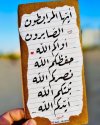 أيتها المرابطون
الصابرون
أواكم الله
حفظكم الله
نصركم الله
ثبتكم الله
أيدكم الله